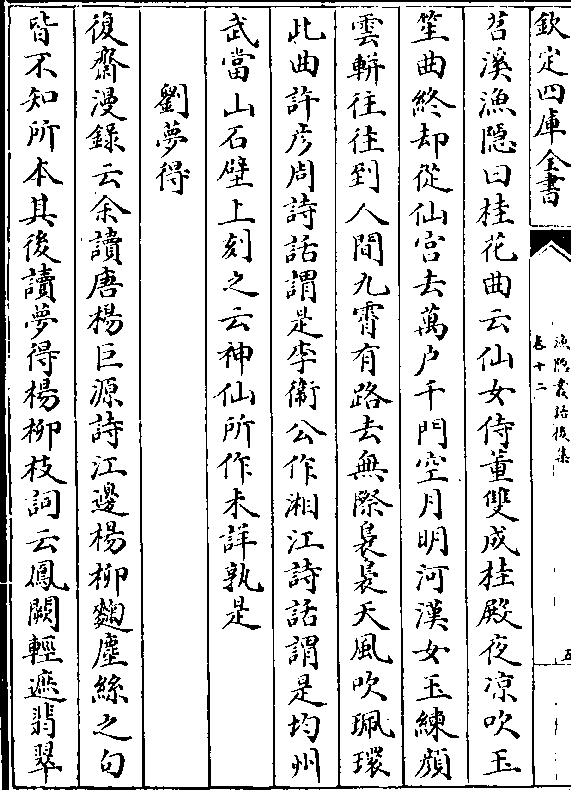 欽定四庫全書
漁隱叢話後集
卷十二
五
苕溪漁隱曰桂花曲云仙女侍董雙成桂殿夜凉吹玉
笙曲終却從仙宫去萬户千門空月明河漢女玉練顔
雲輧往往到人間九霄有路去無際裊裊天風吹珮環
此曲許彦周詩話謂是李衛公作湘江詩話謂是均州
武當山石壁上刻之云神仙所作未詳孰是
劉夢得
復齋漫録云余讀唐楊巨源詩江邊楊柳麴塵絲之句
皆不知所本其後讀夢得楊柳枝詞云鳳闕輕遮翡翠